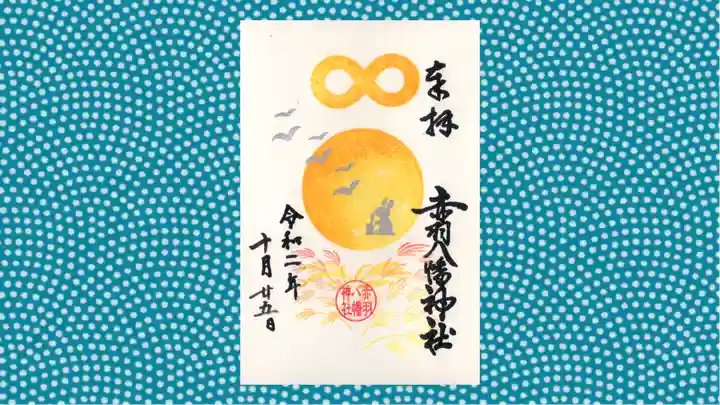 奉拝
赤羽八幡神社
令和二年
十月廿五日
赤羽
八幡
神社